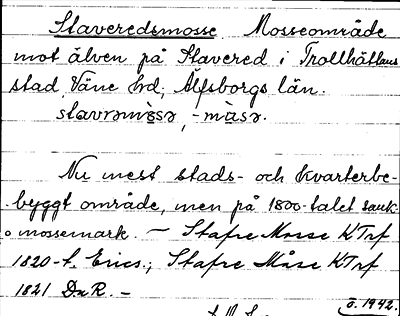 Staveredsmosse Mosseområde
mot älven på Stavered i Trollhättans
stad, Väne hd, Älfsborgs län.
stavrəmòsə, -màsə.
Nu mest stads- och kvarterbe-
byggt område, men på 1800-talet sank
o mossemark. — Stafre Mosse KTrf
1820-t. Erics.; Stafre Måse KTrf
1821 DnR. —
ö. 1942.